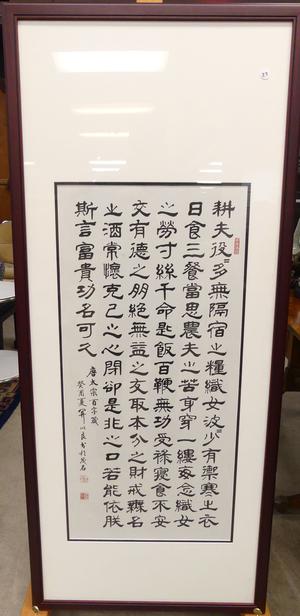 耕夫役〻多無隔宿之糧織女波〻少有禦寒之衣
日食三餐當思農夫之苦身穿一縷每念織女
之勞寸絲千命匙飯百鞭無功受祿寢食不安
交有德之朋絕無益之友取本分之財戒無名
之酒常懷克己之心閉卻是非之口若能依朕
斯言富貴功名可久
唐太宗百字箴
癸酉夏
23